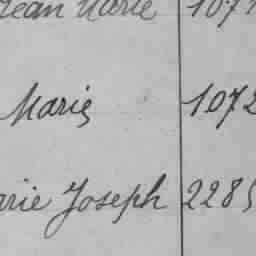 Jean Marie 107
Marie 1072
arie Joseph 2285